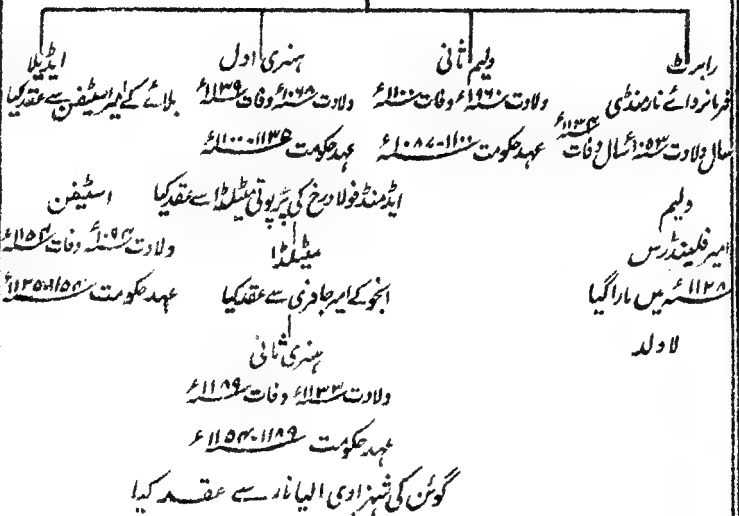 رابرٹ
فرمانروائے نارمنڈی
سال ولادت ۱۰۵۳ء سال وفات ۱۱۳۴ء
ولیم
امیر فلینڈرس
۱۱۲۸ء میں مارا گیا
لاولد
ولیم ثانی
ولادت ۱۹۶۰ء وفات ۱۱۰۰ء
عہد حکومت ۱۱۰۰-۱۰۸۷ء
ہنری اول
ولادت ۱۰۶۸ء وفات ۱۱۳۹ء
عہد حکومت ۱۱۳۵-۱۱۰۰ء
ایڈمنڈ فولاد رخ کی پرپوتی میٹلڈا سے عقد کیا
میٹلڈا
انجو کے امیر جافری سے عقد کیا
ہنری ثانی
ولادت ۱۱۳۳ء وفات ۱۱۸۹ء
عہد حکومت ۱۱۸۹-۱۱۵۴ء
گوئن کی شہزادی الیانار سے عقد کیا
ایڈیلا
بلائے کے امیر اسٹیفن سے عقد کیا
اسٹیفن
ولادت ۱۰۹۴ء وفات ۱۱۵۴ء
عہد حکومت